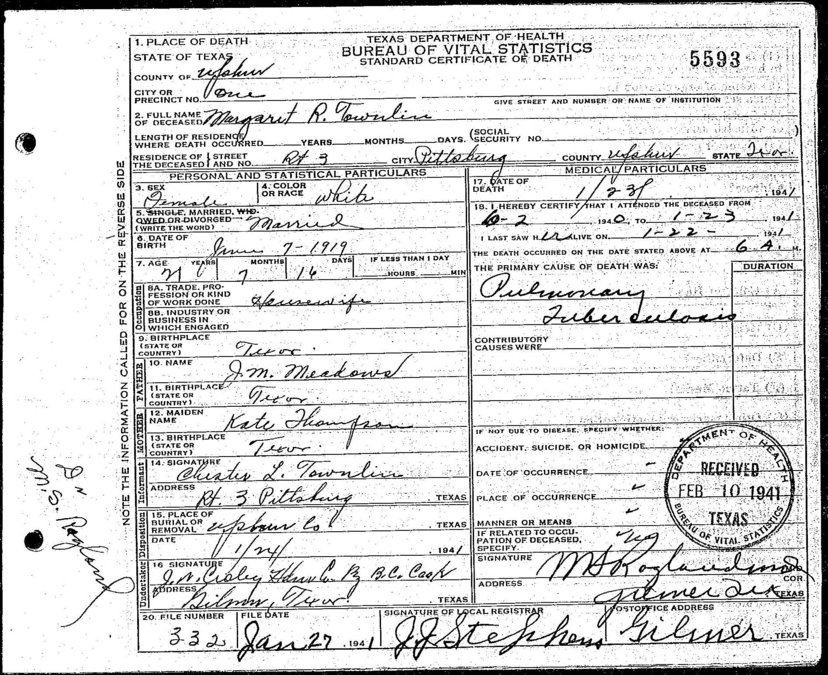 TEXAS DEPARTMENT OF HEALTH
BUREAU OF VITAL STATISTICS
STANDARD CERTIFICATE OF DEATH
5593
1. PLACE OF DEATH
STATE OF TEXAS
COUNTY OF Upshur
CITY OR PRECINCT NO. One
GIVE STREET AND NUMBER OR NAME OF INSTITUTION
2. FULL NAME OF DECEASED Margaret R. Townlin
LENGTH OF RESIDENCE WHERE DEATH OCCURRED YEARS MONTHS DAYS. (SOCIAL SECURITY NO.
RESIDENCE OF THE DECEASED STREET AND NO. Rt 3 CITY Pittsburg COUNTY Upshur STATE
PERSONAL AND STATISTICAL PARTICULARS
3. SEX Female
4. COLOR OR RACE White
5. SINGLE, MARRIED, WIDOWED OR DIVORCED (WRITE THE WORD) Married
6. DATE OF BIRTH June 7-1919
7. AGE YEARS MONTHS DAYS IF LESS THAN 1 DAY
21 7 16 HOURS MIN
Occupation
8A. TRADE, PROFESSION OR KIND OF WORK DONE Housewife
8B. INDUSTRY OR BUSINESS IN WHICH ENGAGED
9. BIRTHPLACE (STATE OR COUNTRY) Texas
FATHER
10. NAME J. M. Meadows
11. BIRTHPLACE (STATE OR COUNTRY) Texas
MOTHER
12. MAIDEN NAME Kate Thompson
13. BIRTHPLACE (STATE OR COUNTRY) Texas
Informant
14. SIGNATURE Chester L. Townlin
ADDRESS Rt 3 Pittsburg TEXAS
Disposition
15. PLACE OF BURIAL OR REMOVAL Upshur Co TEXAS
DATE 1/24/ 1941
Undertaker
16 SIGNATURE J. W. Croley By B.C. Cook
ADDRESS Gilmer, Texas TEXAS
MEDICAL PARTICULARS
17. DATE OF DEATH 1/23/ 1941
18. I HEREBY CERTIFY THAT I ATTENDED THE DECEASED FROM
1940, TO 1-23 1941
I LAST SAW HER ALIVE ON 1-22- 1941
THE DEATH OCCURRED ON THE DATE STATED ABOVE AT 6 A. M.
THE PRIMARY CAUSE OF DEATH WAS: DURATION
Pulmonary
Tuberculosis
CONTRIBUTORY CAUSES WERE
IF NOT DUE TO DISEASE, SPECIFY WHETHER:
ACCIDENT, SUICIDE, OR HOMICIDE
DATE OF OCCURRENCE
PLACE OF OCCURRENCE
MANNER OR MEANS
IF RELATED TO OCCUPATION OF DECEASED, SPECIFY. No
SIGNATURE M S Ragland MD
COR.
ADDRESS Gilmer Tex TEXAS
DEPARTMENT OF HEALTH
RECEIVED
FEB 10 1941
TEXAS
BUREAU OF VITAL STATISTICS
20. FILE NUMBER FILE DATE SIGNATURE OF LOCAL REGISTRAR POSTOFFICE ADDRESS
332 Jan 27 1941 J J Stephens Gilmer, TEXAS
NOTE THE INFORMATION CALLED FOR ON THE REVERSE SIDE
Dr
M. S. Ragland